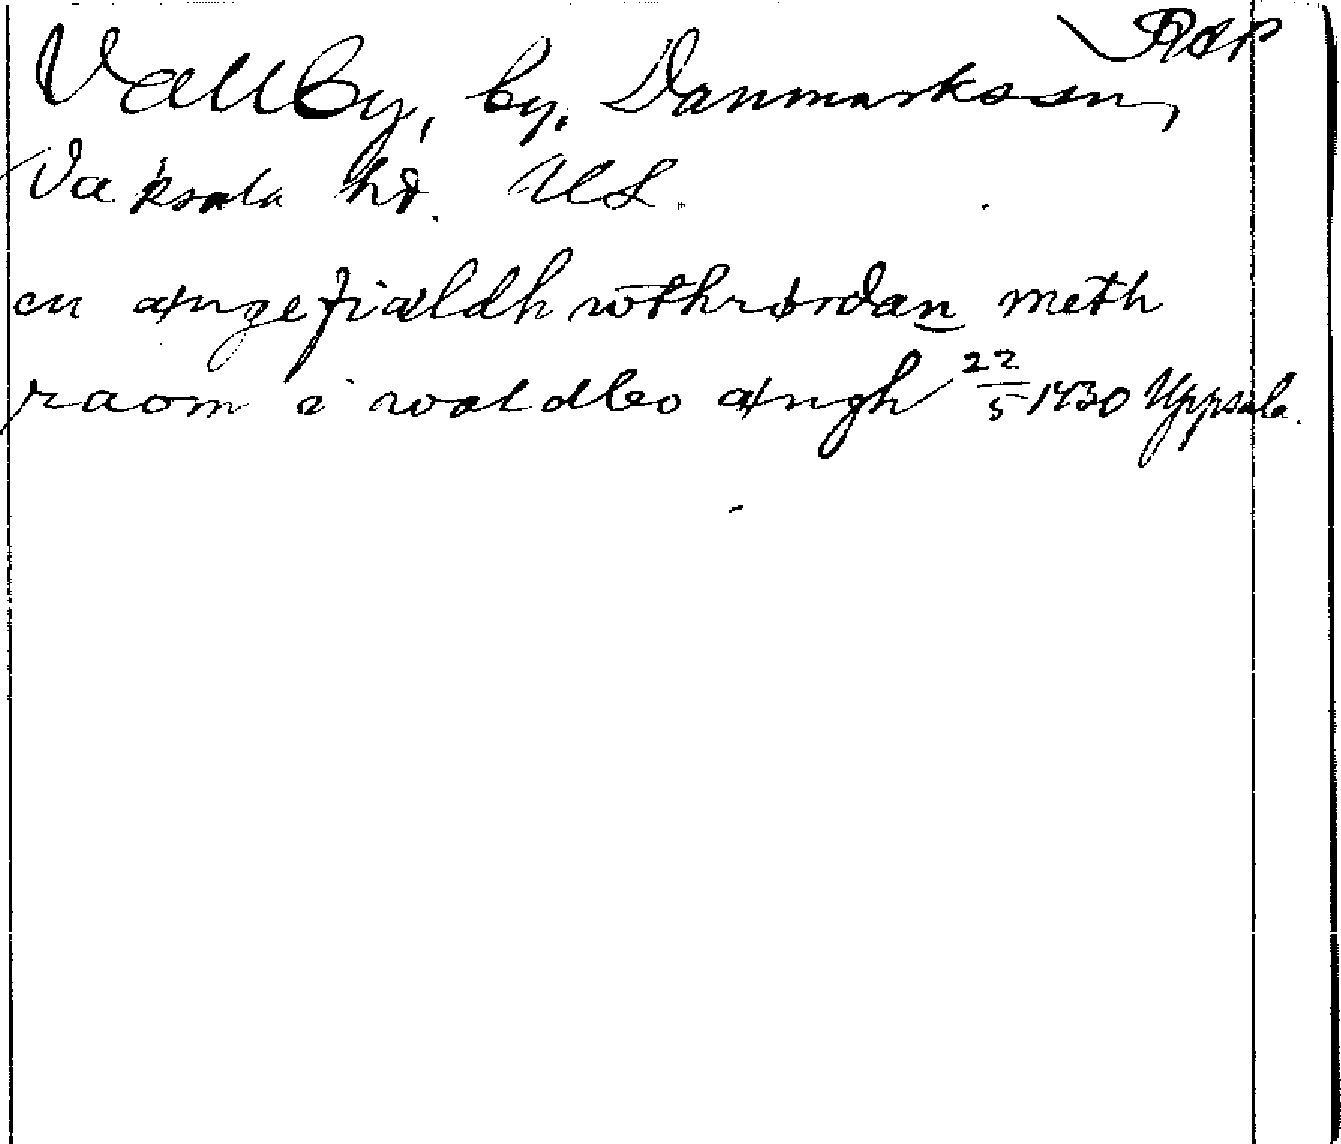 RAP
Vallby, by, Danmarks sn,
Vaksala hd. UL.
en ængefiældh wthrørdan meth
raom i waldbo ængh 22/5 1430 Uppsala.